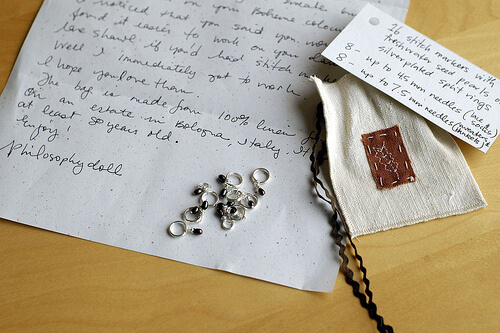 I noticed that you said you wo
found it easier to work on your
lace shawl if you'd had stitch
Well I immediately got to work
I hope you love them
The bag is made from 100% linen
on an estate in Bologna, Italy. It
at least 80 years old.
Enjoy!
Philosophydoll
26 stitch markers with
freshwater seed pearls.
silver plated split rings
8 - up to 4.5 mm needles (lace, socks)
8 - up to 7.5 mm needles (sweaters, blankets)